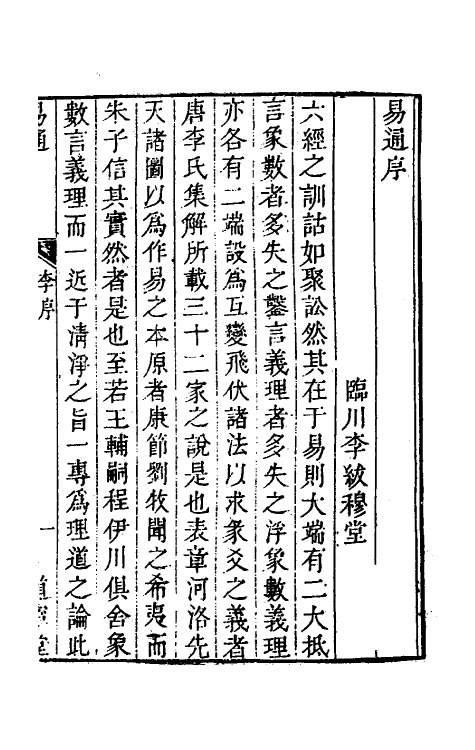 易通序
臨川李紱穆堂
六經之訓詁如聚訟然其在于易則大端有二大抵
言象數者多失之鑿言義理者多失之浮象數義理
亦各有二端設爲互變飛伏諸法以求彖爻之義者
唐李氏集解所載三十二家之說是也表章河洛先
天諸圖以爲作易之本原者康節劉牧聞之希夷而
朱子信其實然者是也至若王輔嗣程伊川俱舍象
數言義理而一近于清淨之旨一專爲理道之論此
易通
李序
一
道
堂